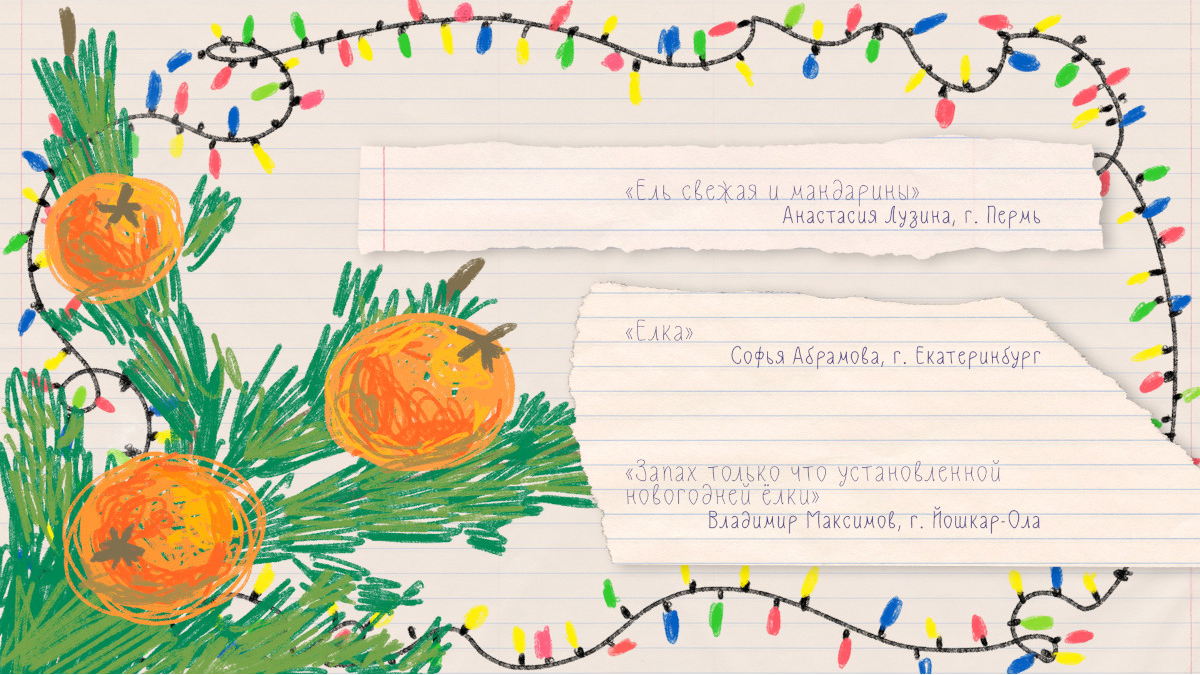 «Ель свежая и мандарины»
Анастасия Лузина, г. Пермь
«Елка»
Софья Абрамова, г. Екатеринбург
«Запах только что установленной
новогодней ёлки»
Владимир Максимов, г. Йошкар-Ола